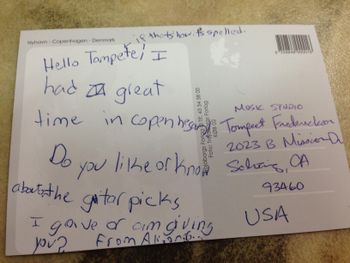 Nyhavn - Copenhagen - Denmark
is thats how its spelled.
Hello Tampete! I
had a great
time in copenhagen
Do you like or know
about the gitar picks
I gave or am giving
you?
From
Music Studio
Tempest Frederickson
2023 B Mission Dr
Solvang, CA
93460
USA